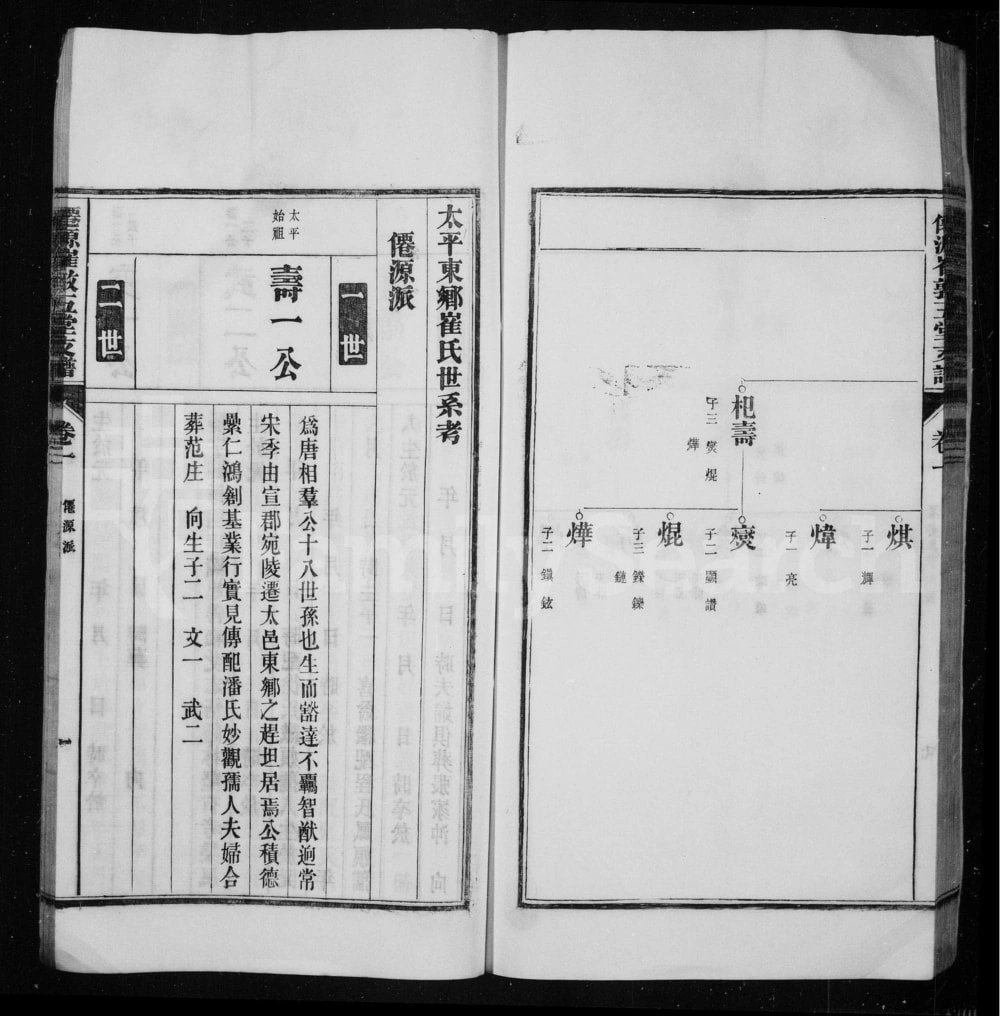 杞壽
子三 煐 焜
燁
煐
子二 顯 讚
焜
子三 鑅 鑠
鏈
燁
子二 鎭 鉉
煒
子一 亮
煠
子一 輝
太平東鄉崔氏世系考
僊源派
一世
太平
始祖
壽一公
爲唐相羣公十八世孫也生而豁達不羈智猷逈常
宋季由宣郡宛陵遷太邑東鄉之趕坦居焉公積德
纍仁鴻創基業行實見傳配潘氏妙觀孺人夫婦合
葬范庄 向生子二 文一 武二
二世
卷一
僊源派